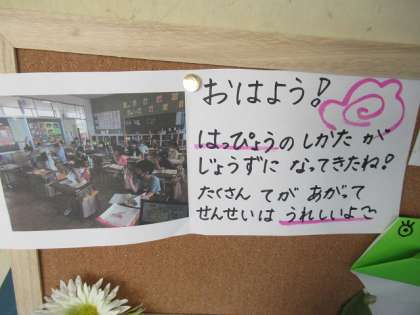 おはよう!
はっぴょうの しかた が
じょうずに なってきたね!
たくさん てが あがって
せんせいは うれしいよ